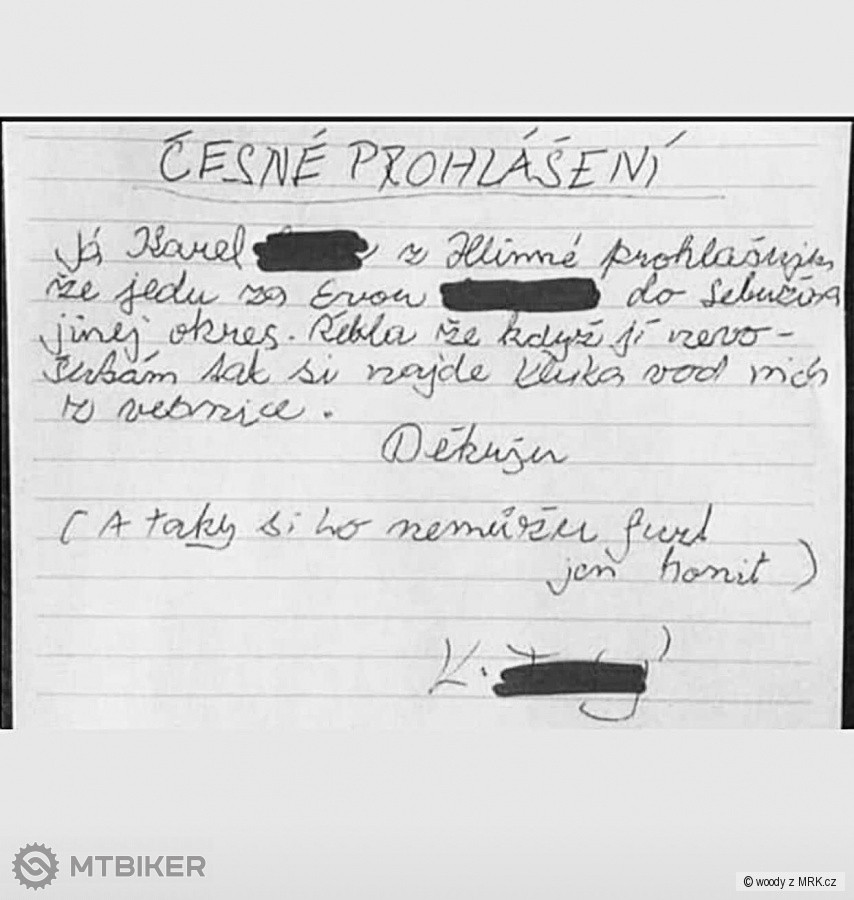 ČESNÉ PROHLÁŠENÍ
Já Karel z Hlinné prohlašuju
že jedu za Evou do Sebužína
jinej okres. Řekla že když jí nevo-
šukám tak si najde kluka vod nich
z vesnice.
Děkuju
(A taky si ho nemůžu furt
jen honit)
K.
MTBIKER
© woody z MRK.cz